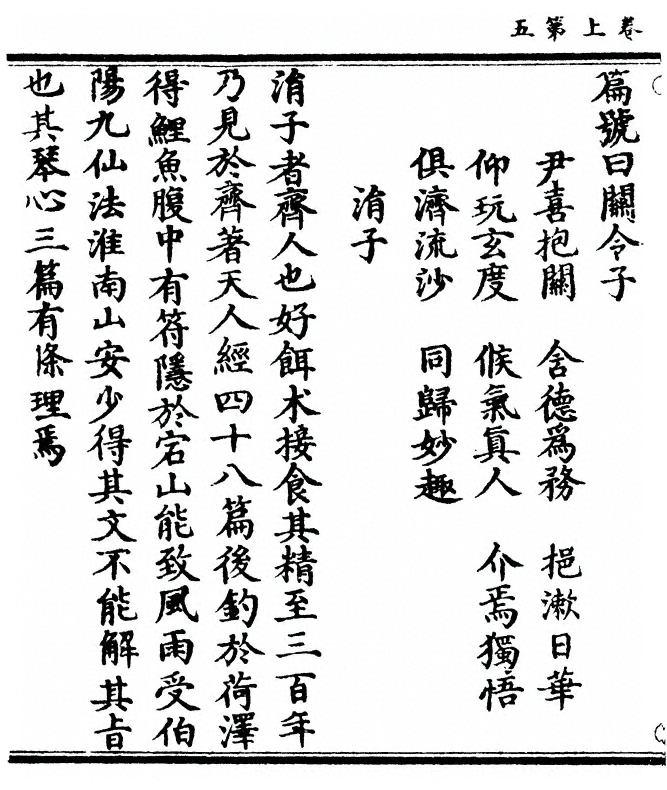 卷上第五
篇號曰關令子
尹喜抱關 舍德爲務 挹漱日華
仰玩玄度 候氣真人 介焉獨悟
俱濟流沙 同歸妙趣
涓子
涓子者齊人也好餌术接食其精至三百年
乃見於齊著天人經四十八篇後釣於荷澤
得鯉魚腹中有符隱於宕山能致風雨受伯
陽九仙法淮南山安少得其文不能解其旨
也其琴心三篇有條理焉